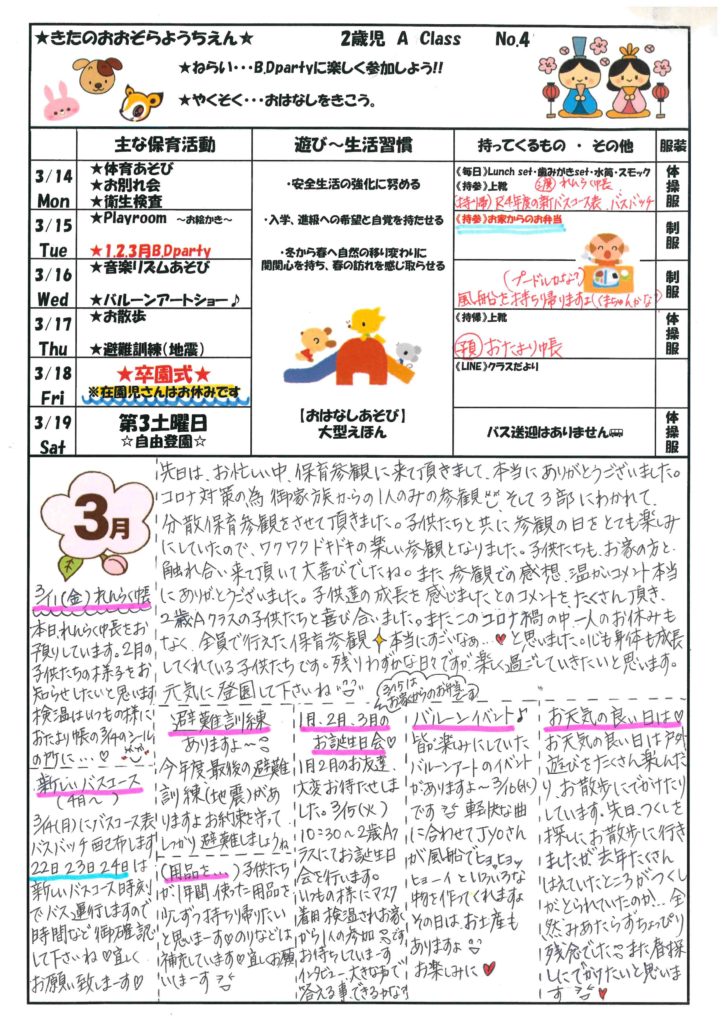 ★きたのおおぞらようちえん★ 2歳児 A Class No.4
★ねらい・・・B.Dpartyに楽しく参加しよう!!
★やくそく・・・おはなしをきこう。
主な保育活動 遊び〜生活習慣 持ってくるもの ・ その他 服装
3/14 Mon
★体育あそび
★お別れ会
★衛生検査
・安全生活の強化に努める
《毎日》Lunch set・歯みがきset・水筒・スモック
《持参》上靴 れんらく帳
(持ち帰) R4年度の新バスコース表、バスバッチ
体操服
3/15 Tue
★Playroom 〜お絵かき〜
★1.2.3月B.Dparty
・入学、進級への希望と自覚を持たせる
《持参》お家からのお弁当
制服
3/16 Wed
★音楽リズムあそび
★バルーンアートショー♪
・冬から春へ自然の移り変わりに
関関心を持ち、春の訪れを感じ取らせる
(プードルかな?)
風船を持ち帰りますよ(くまちゃんかな?)
制服
3/17 Thu
★お散歩
★避難訓練(地震)
《持帰》上靴
預 おたより帳
体操服
3/18 Fri
★卒園式★
※在園児さんはお休みです
《LINE》クラスだより
3/19 Sat
第3土曜日
☆自由登園☆
【おはなしあそび】
大型えほん
バス送迎はありません
体操服
3月
先日は、お忙しい中、保育参観に来て頂きまして、本当にありがとうございました。
コロナ対策の為 御家族からの1人のみの参観、そして3部にわかれて、
分散保育参観をさせて頂きました。子供たちと共に参観の日をとても楽しみ
にしていたので、ワクワクドキドキの楽しい参観となりました。子供たちも、お家の方と、
触れ合い来て頂いて大喜びでしたね。また参観での感想、温かいコメント本当
にありがとうございます。子供達の成長を感じましたとのコメントを、たくさん頂き、
2歳Aクラスの子供たちと喜び合いました。またこのコロナ禍の中一人のお休みも
なく、全員で行えた保育参観 本当にすごいなぁ…♥と思いました。心も身体も成長
してくれている子供たちです。残りわずかな日々ですが、楽しく過ごしていきたいと思います。
元気に登園して下さいね
3/15は
お家からのお弁当
3/11(金)れんらく帳
本日れんらく帳をお
預りしています。2月の
子供たちの様子をお
知らせしたいと思います
検温はいつも様に
おたより帳の3/14のシールの
所に…♡
新しいバスコース
(4月〜)
3/14(月)にバスコース表
バスバッチ配布します
22日23日24日は
新しいバスコース時刻
でバス運行しますので
時間など御確認
して下さいね♡宜しく
お願い致しまーす♡
避難訓練
ありますよ〜
今年度最後の避難
訓練(地震)があ
りますよお約束を守って
しっかり避難しましょうね
(用品を…)子供たち
が1年間使った用品を
少しずつ持ち帰りたい
と思いまーす♡のりなどは
補充しています♡宜しくお願
いしまーす
1月、2月、3月の
お誕生日会♡
1月2月のお友達、
大変お待たせしま
した。3/15(火)
10:30〜2歳Aク
ラスにてお誕生日
会を行います。
いつもの様にマスク
着用 検温されお家
から1人の参加です
お待ちしていまーす
インタビュー、大きな声で
答える事、できるかな?
バルーンイベント♪
皆楽しみにしていた
バルーンアートのイベント
がありますよ〜3/16(水)
です 軽快な曲
に合わせてJyoさん
が風船でヒョヒョッ
ヒョーイといろいろな
物を作ってくれますよ
その日は、お土産も
ありますよ
お楽しみに♥
お天気の良い日は♡
お天気の良い日は戸外
遊びをたくさん楽しんだ
り、お散歩にでかけたり
しています。先日、つくしを
探しにお散歩に行き
ましたが去年たくさん
はえていたところがつくし
がとられていたのか…全
然みあたらずちょっぴり
残念でした また春探
しにでかけたいと思いま
す ♥